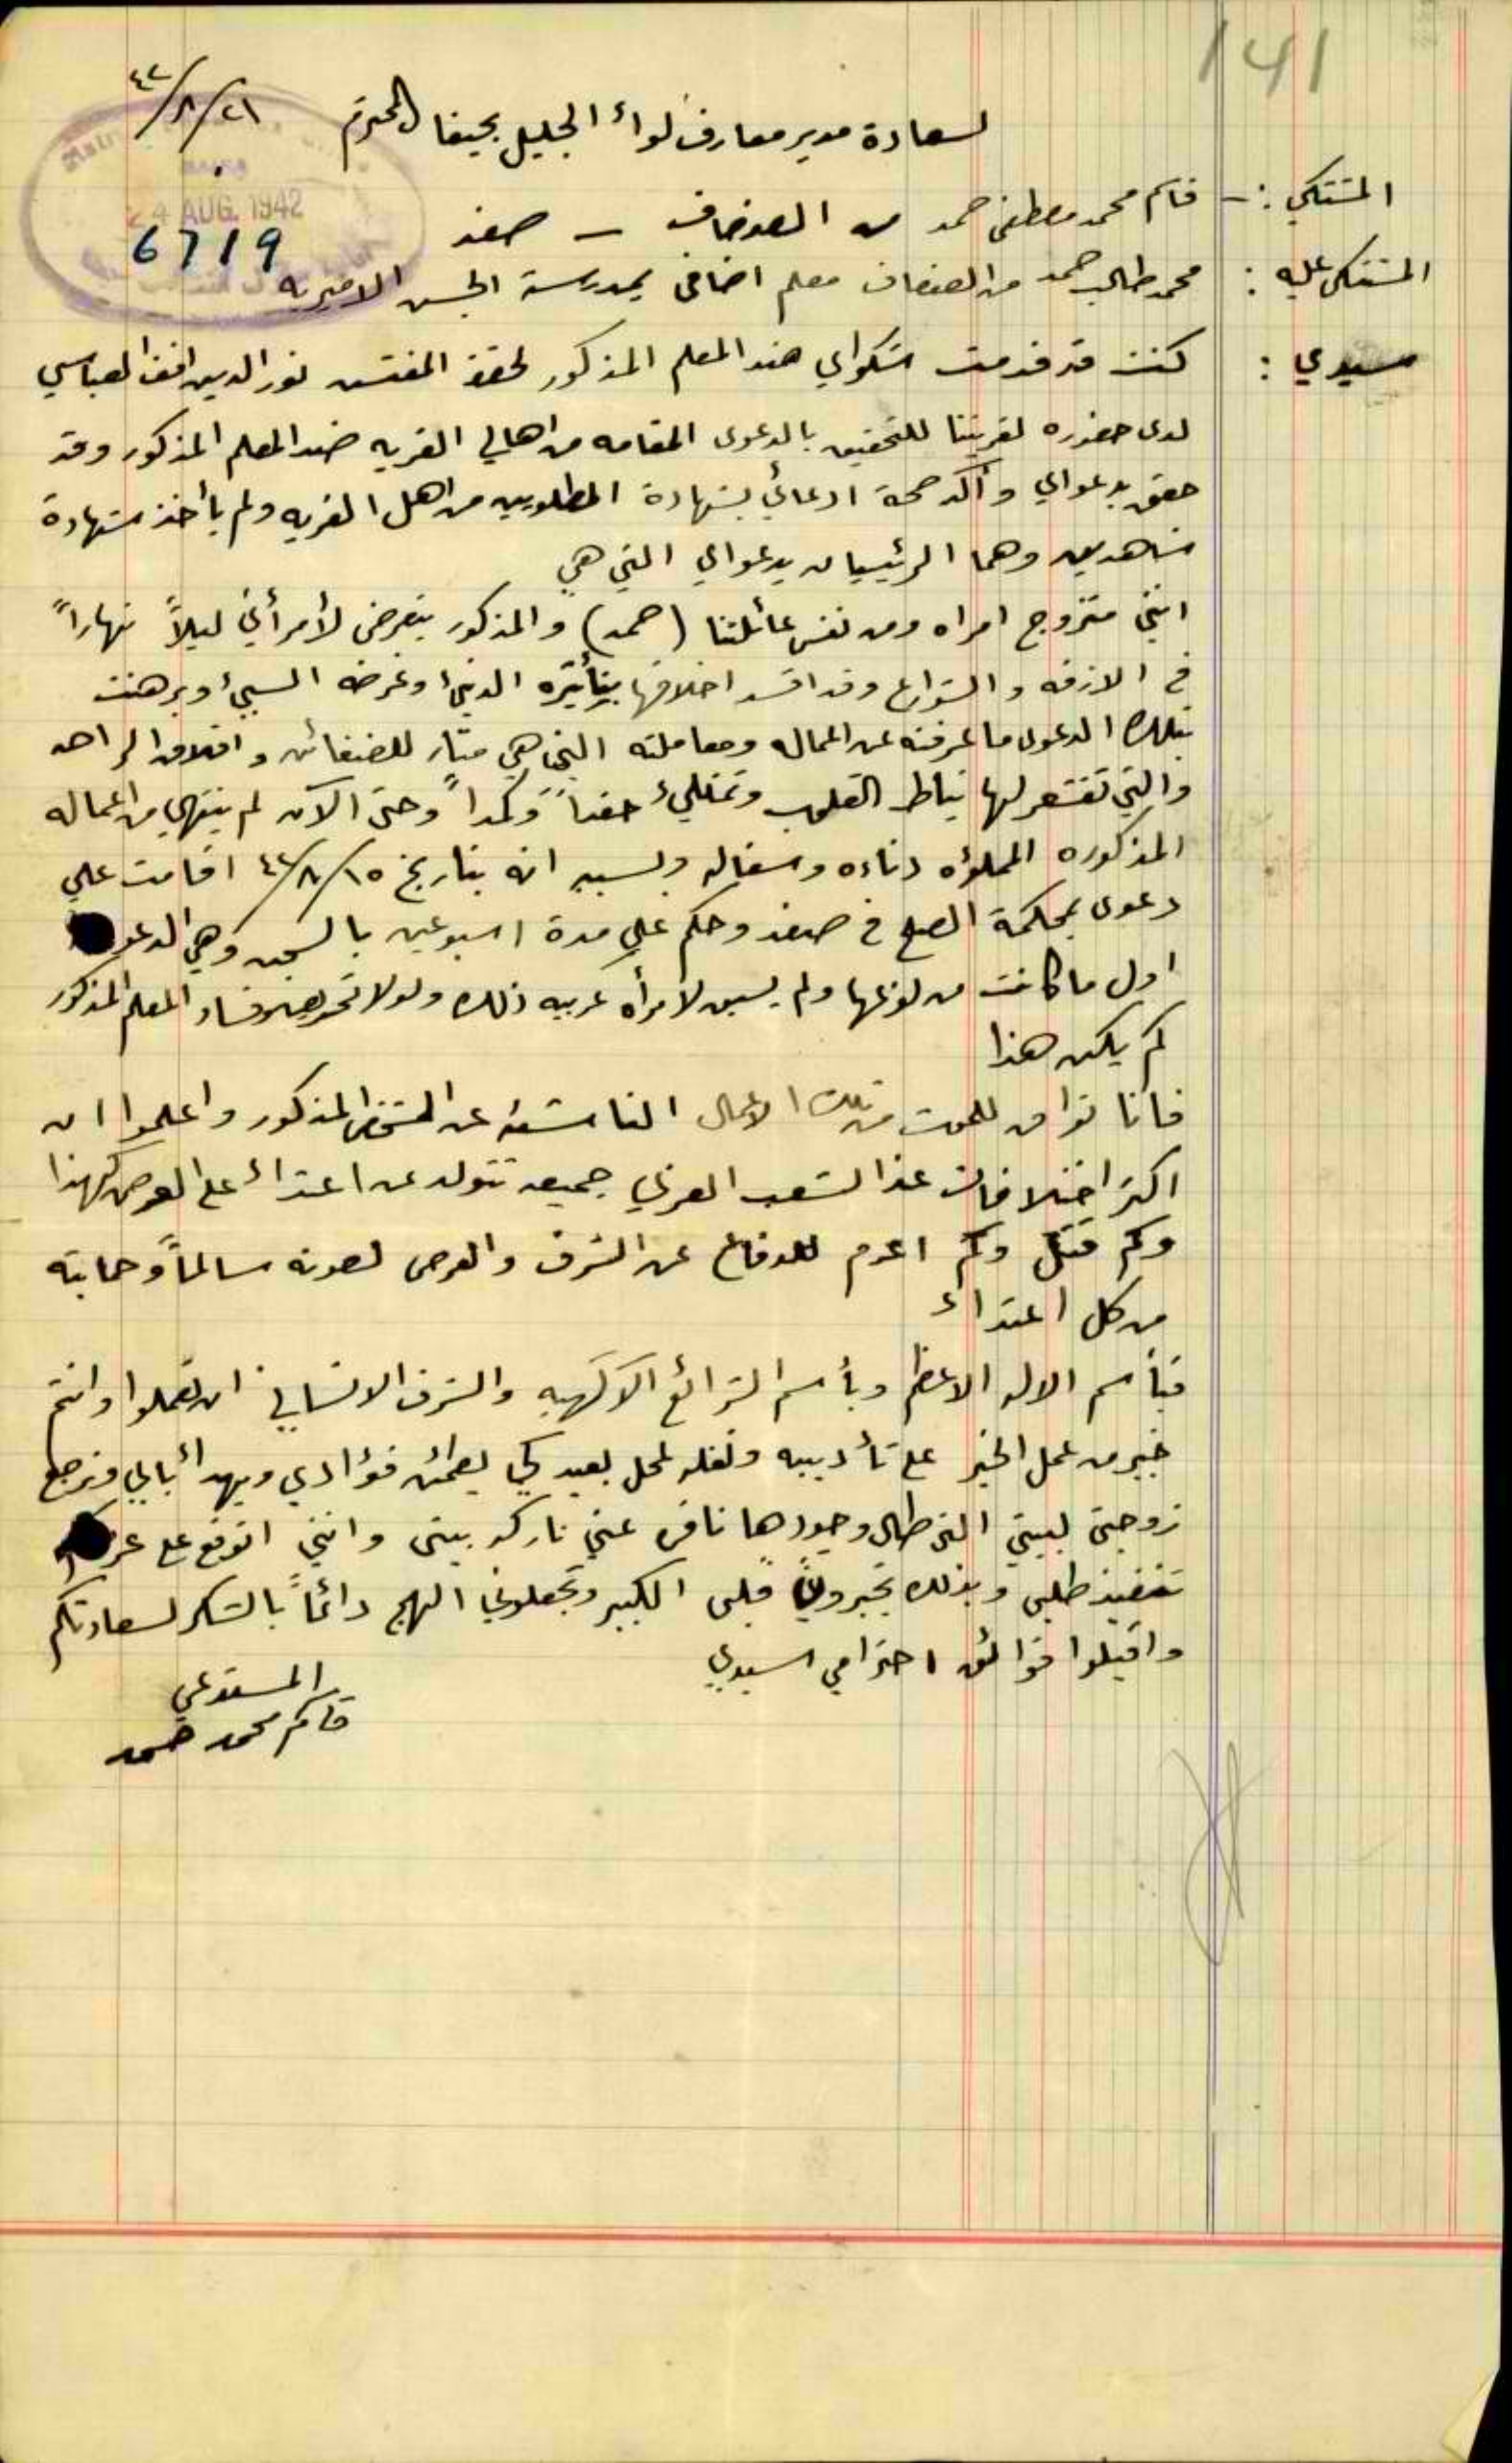 141
٢١/٨/٤٢
لسعادة مدير معارف لواء الجليل بحيفا المحترم
24 AUG. 1942
6719
المشتكي :- قاسم محمد مصطفى حمد من الصفصاف - صفد
المشتكى عليه : محمد طالب حمد من الصفصاف معلم اضافي بمدرسة الجش الاميريه
سيدي : كنت قد قدمت شكواي ضد المعلم المذكور لحضرة المفتش نور الدين افندي العباسي
لدى حضوره لقريتنا للتحقيق بالدعوى المقامه من اهالي القريه ضد المعلم المذكور وقد
حقق بدعواي وأكد صحة ادعائي بشهادة المطلوبين من اهل القريه ولم يأخذ شهادة
شاهدين وهما الرئيسيان بدعواي التي هي
انني متزوج امراه ومن نفس عائلتنا (حمد) والمذكور يتعرض لأمرأتي ليلاً نهاراً
في الازقه والشوارع وقد افسد اخلاقها بتأثيره الدنيء وغرضه السيء وبرهنت
بتلك الدعوى ما عرفته عن اعماله ومعاملته التي هي مثار للضغائن واقلاق الراحه
والتي تقشعر لها نياط القلوب وتمتلئ حقداً وكمداً وحتى الآن لم ينتهي من اعماله
المذكوره المملوئه دناءه وسفاله وبسببه انه بتاريخ ١٥/٨/٤٢ اقامت علي
دعوى بمحكمة الصلح في صفد وحكم علي مدة اسبوعين بالسجن وهي الدعوى
اول ما كانت من نوعها ولم يسبق لامرأه عربيه ذلك ولولا فساد المعلم المذكور
لم يكن هذا
فانا تواق للموت من تلك الاعمال الناشئه عن الشخص المذكور واعلموا ان
اكثر اختلافات هذا الشعب العربي جميعه تتولد عن اعتداء على العرض كهذا
وكم قتل وكم اعدم للدفاع عن الشرف والعرض لصونه سالماً وحمايته
من كل اعتداء
فبأسم الاله الاعظم وبأسم الشرائع الآلهيه والشرف الانساني ان تعملوا وانتم
خير من عمل الخير على تأديبه ونقله لمحل بعيد كي يطمئن فؤادي ويهدأ بالي وترجع
زوجتي لبيتي التي طال وجودها نافره عني تاركه بيتي وانني اتوقع على
تنفيذ طلبي وبذلك تجبرون قلبي الكسير وتجعلوني الهج دائماً بالشكر لسعادتكم
واقبلوا فوائق احترامي سيدي
المستدعي
قاسم محمد حمد